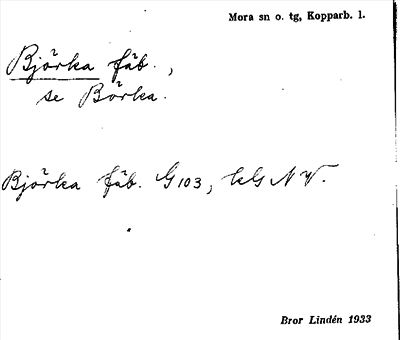 Mora sn o. tg, Kopparb. l.
Björka fäb.,
se Börka.
Björka fäb. G103, kls NV.
Bror Lindén 1933